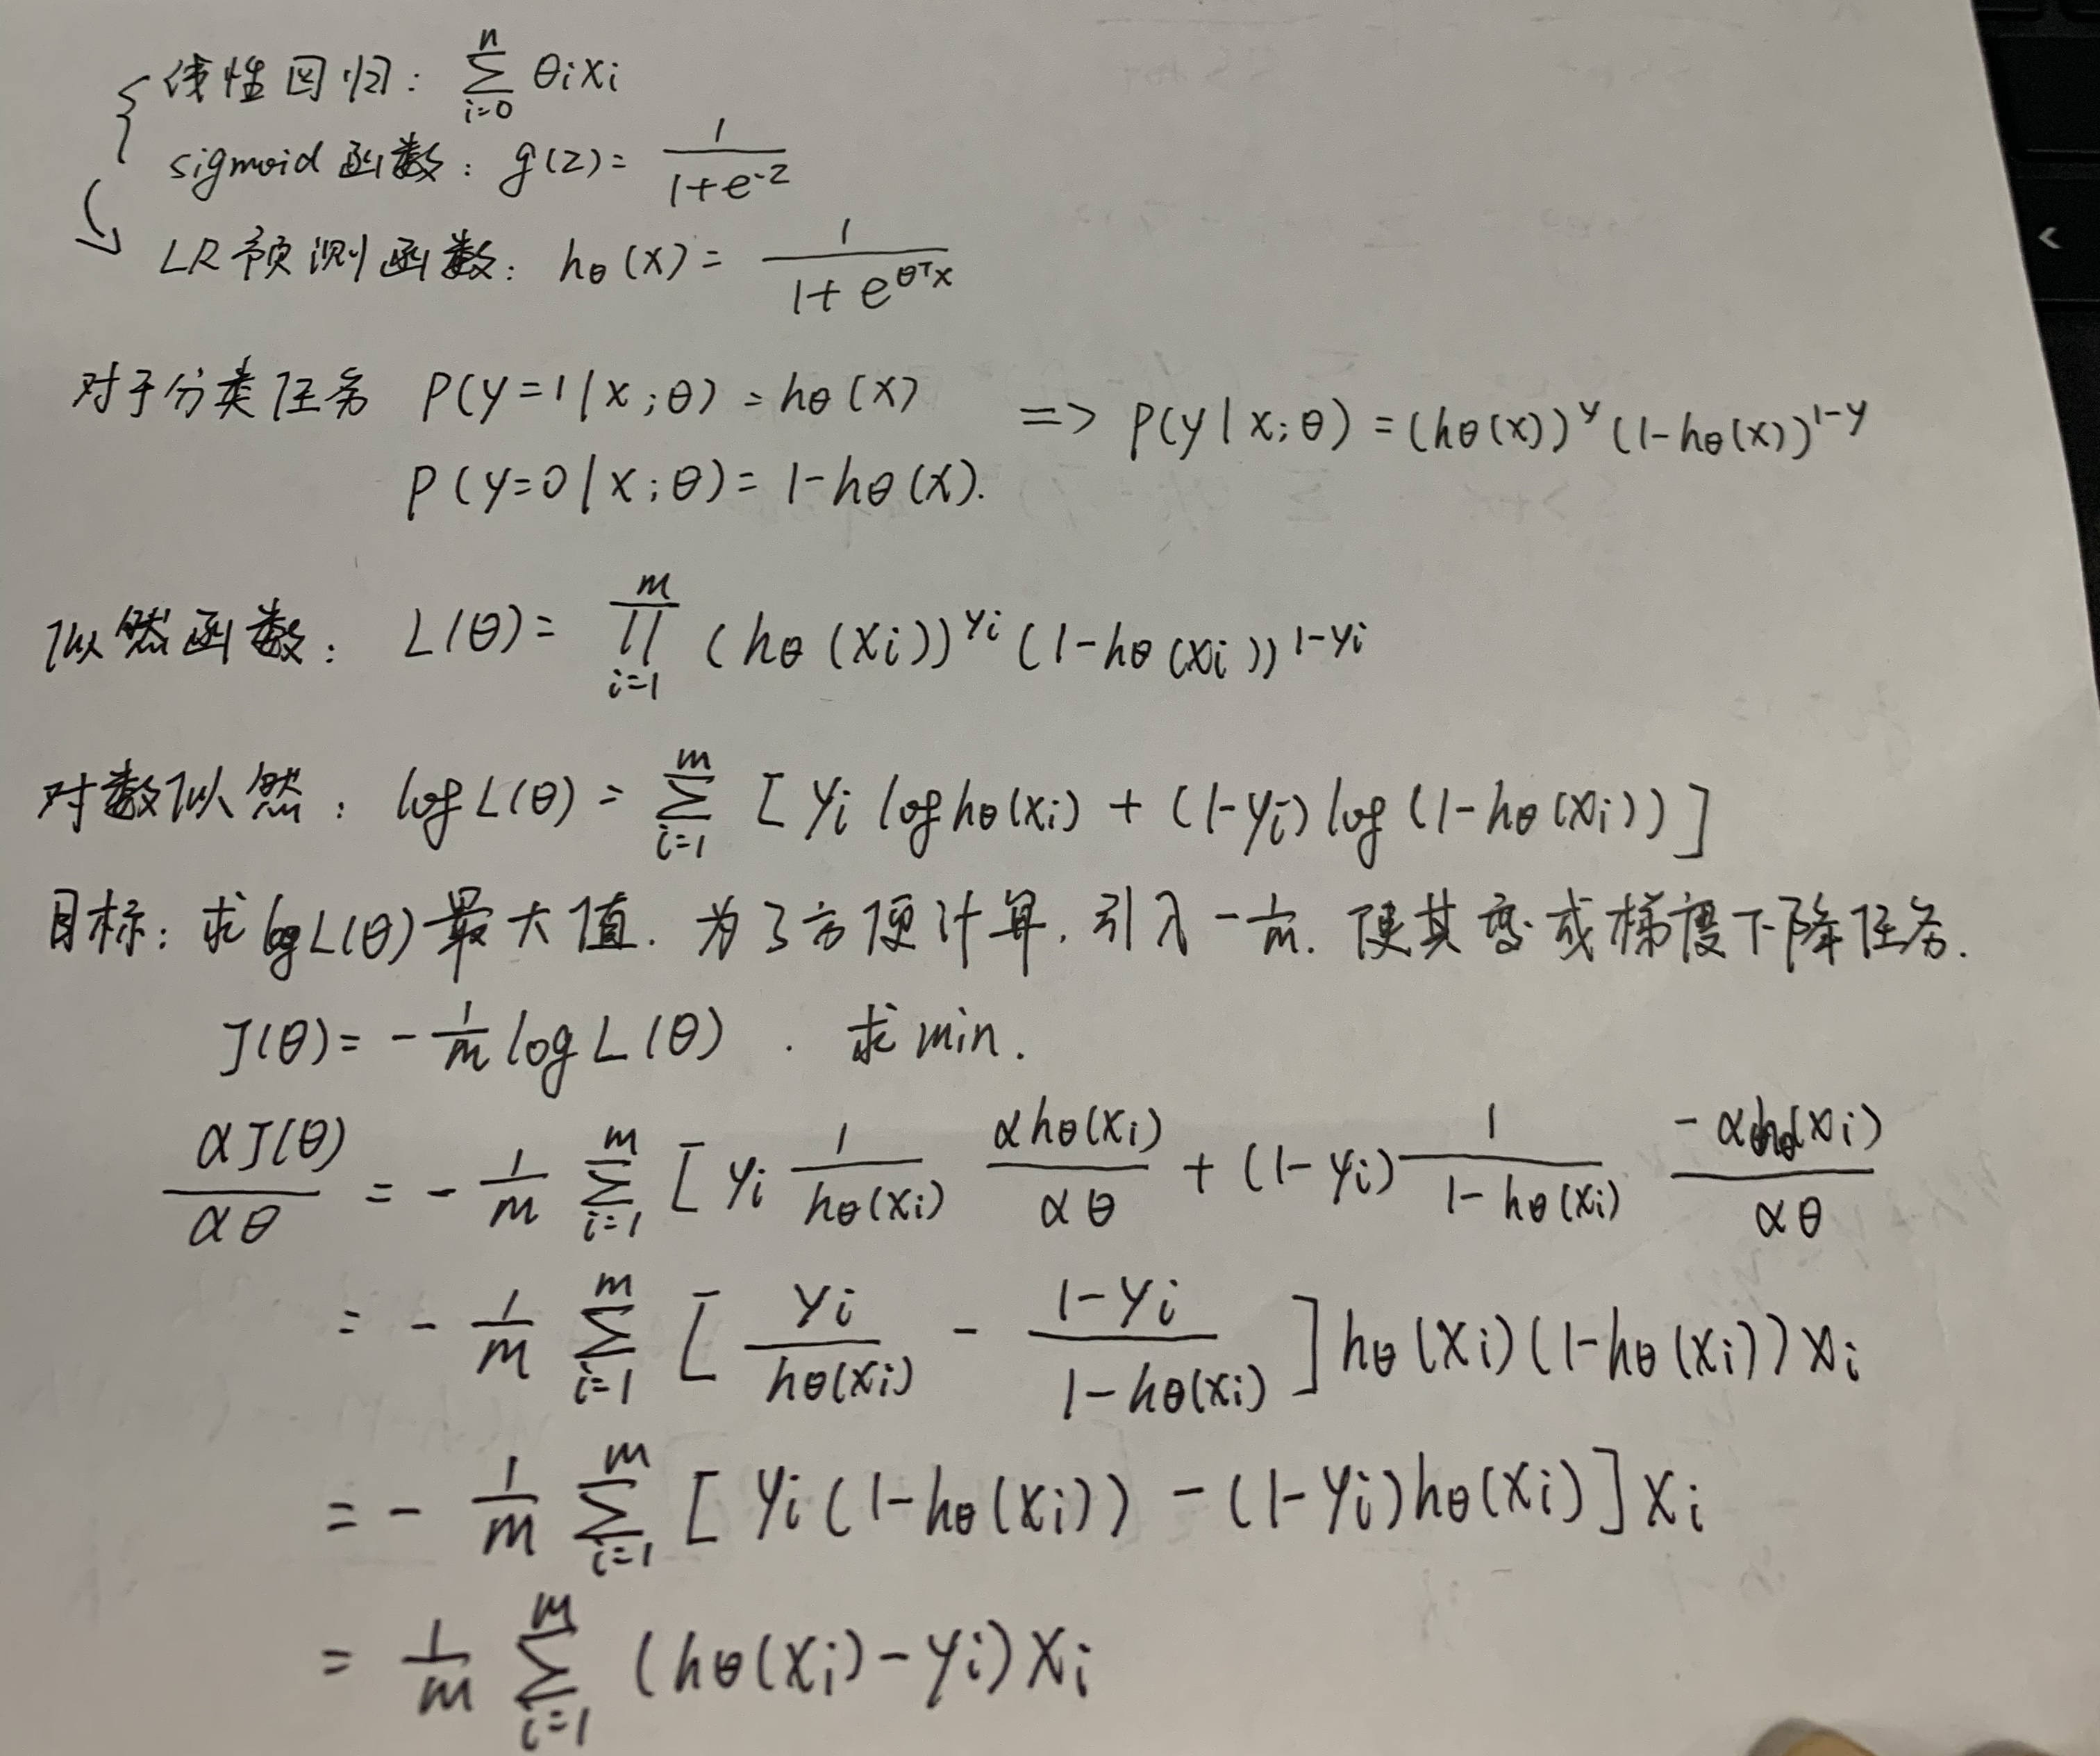 线性回归: \sum_{i=0}^{n} θ_i x_i
sigmoid函数: g(z) = \frac{1}{1+e^{-z}}
LR预测函数: h_θ(x) = \frac{1}{1+e^{θ^T x}}
对于分类任务 P(y=1|x;θ) = h_θ(x) => P(y|x;θ) = (h_θ(x))^y (1-h_θ(x))^{1-y}
P(y=0|x;θ) = 1-h_θ(x).
似然函数: L(θ) = \prod_{i=1}^{m} (h_θ(x_i))^{y_i} (1-h_θ(x_i))^{1-y_i}
对数似然: log L(θ) = \sum_{i=1}^{m} [y_i log h_θ(x_i) + (1-y_i) log (1-h_θ(x_i))]
目标: 求 log L(θ) 最大值. 为了方便计算, 引入 -\frac{1}{m}. 使其变成梯度下降任务.
J(θ) = -\frac{1}{m} log L(θ) . 求 min.
\frac{αJ(θ)}{αθ} = -\frac{1}{m} \sum_{i=1}^{m} [y_i \frac{1}{h_θ(x_i)} \frac{αh_θ(x_i)}{αθ} + (1-y_i) \frac{1}{1-h_θ(x_i)} \frac{-αh_θ(x_i)}{αθ}
= -\frac{1}{m} \sum_{i=1}^{m} [\frac{y_i}{h_θ(x_i)} - \frac{1-y_i}{1-h_θ(x_i)}] h_θ(x_i)(1-h_θ(x_i)) x_i
= -\frac{1}{m} \sum_{i=1}^{m} [y_i(1-h_θ(x_i)) - (1-y_i)h_θ(x_i)] x_i
= \frac{1}{m} \sum_{i=1}^{m} (h_θ(x_i)-y_i) x_i